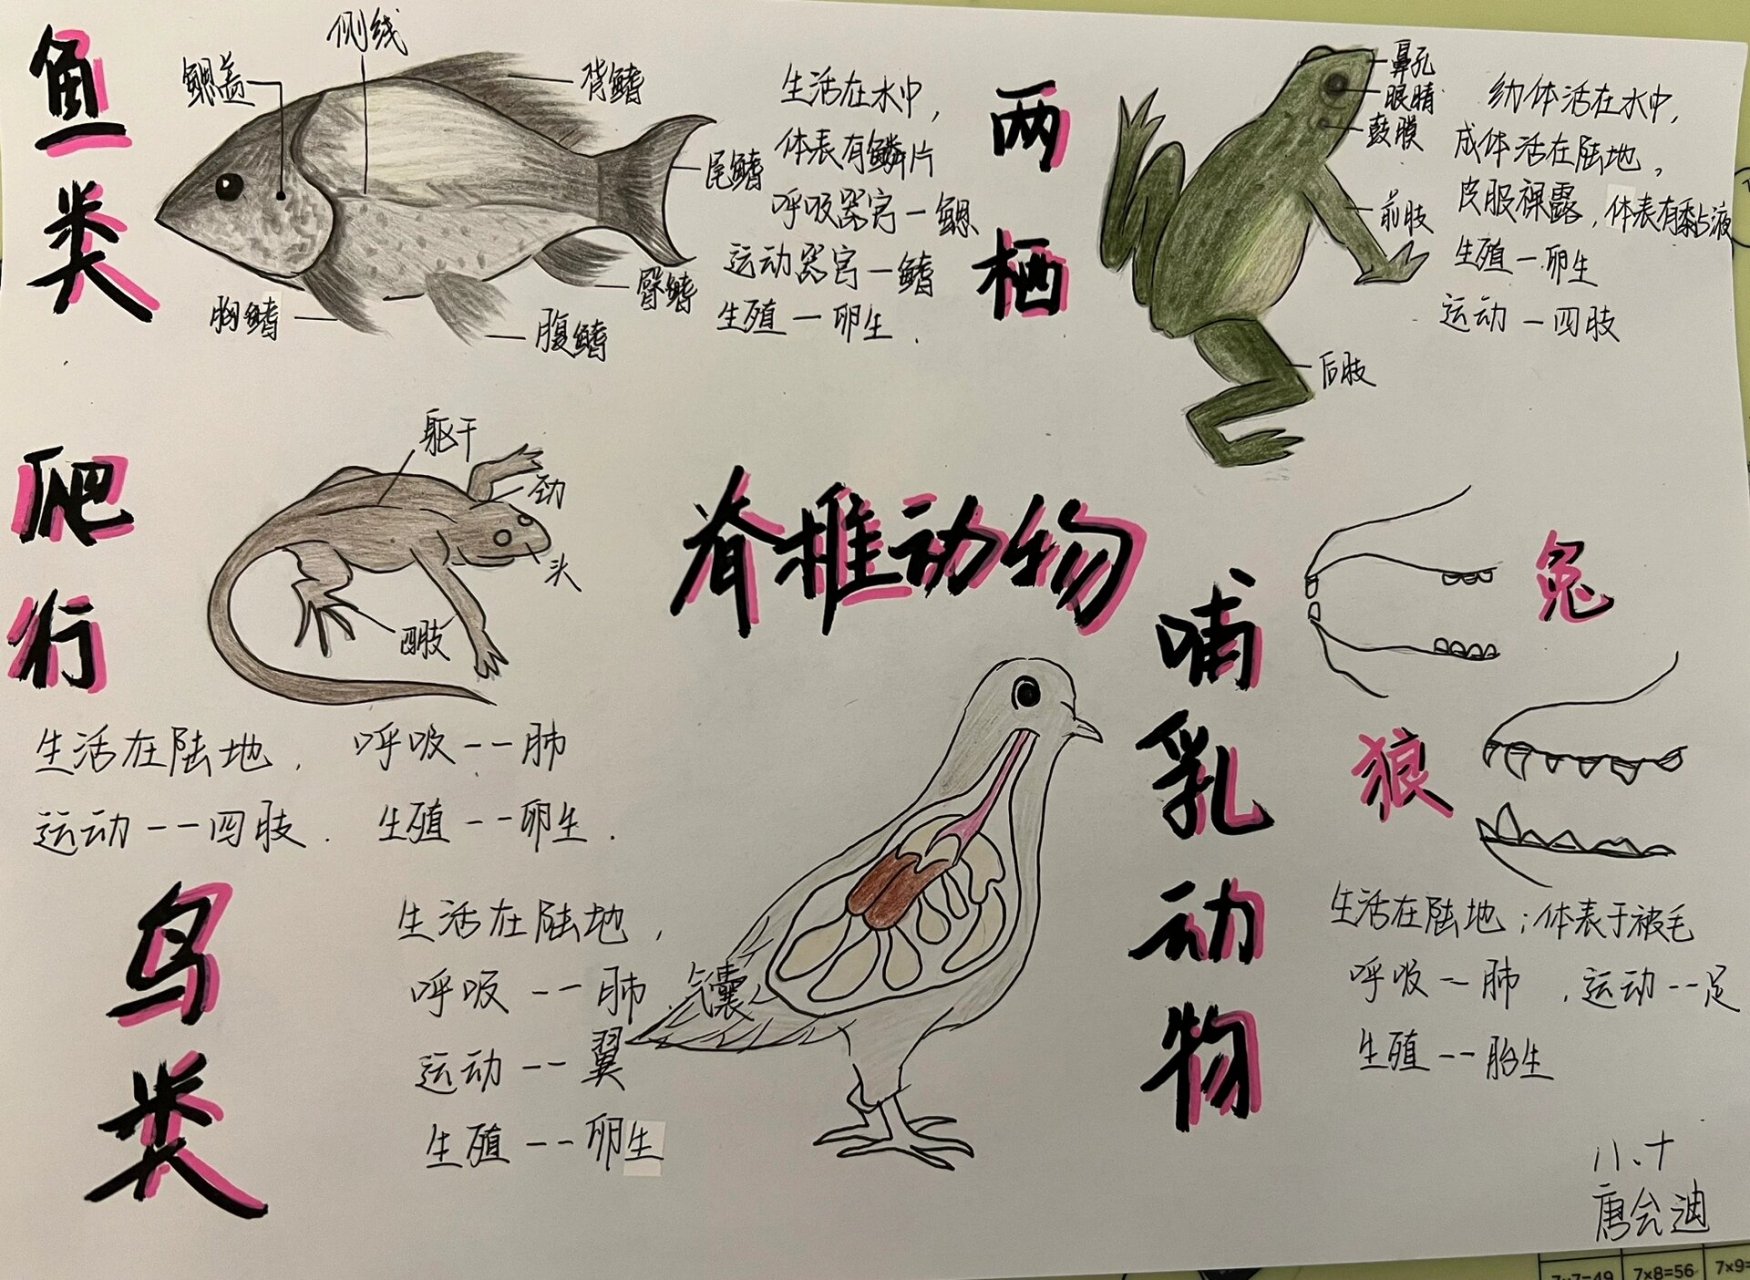 鱼类
鳃盖
侧线
背鳍
尾鳍
臀鳍
腹鳍
胸鳍
生活在水中，
体表有鳞片
呼吸器官一鳃
运动器官一鳍
生殖一卵生．
两栖
鼻孔
眼睛
鼓膜
前肢
后肢
幼体活在水中，
成体活在陆地，
皮服裸露，体表有黏液
生殖一卵生
运动一四肢
爬行
躯干
劲
头
四肢
生活在陆地． 呼吸--肺
运动--四肢． 生殖--卵生．
脊椎动物
鸟类
生活在陆地，
呼吸--肺．气囊
运动--翼
生殖--卵生
哺乳动物
兔
狼
生活在陆地；体表于被毛
呼吸--肺 ，运动--足
生殖--胎生
八、十
唐会迪
7×7=49 7×8=56 7×9=